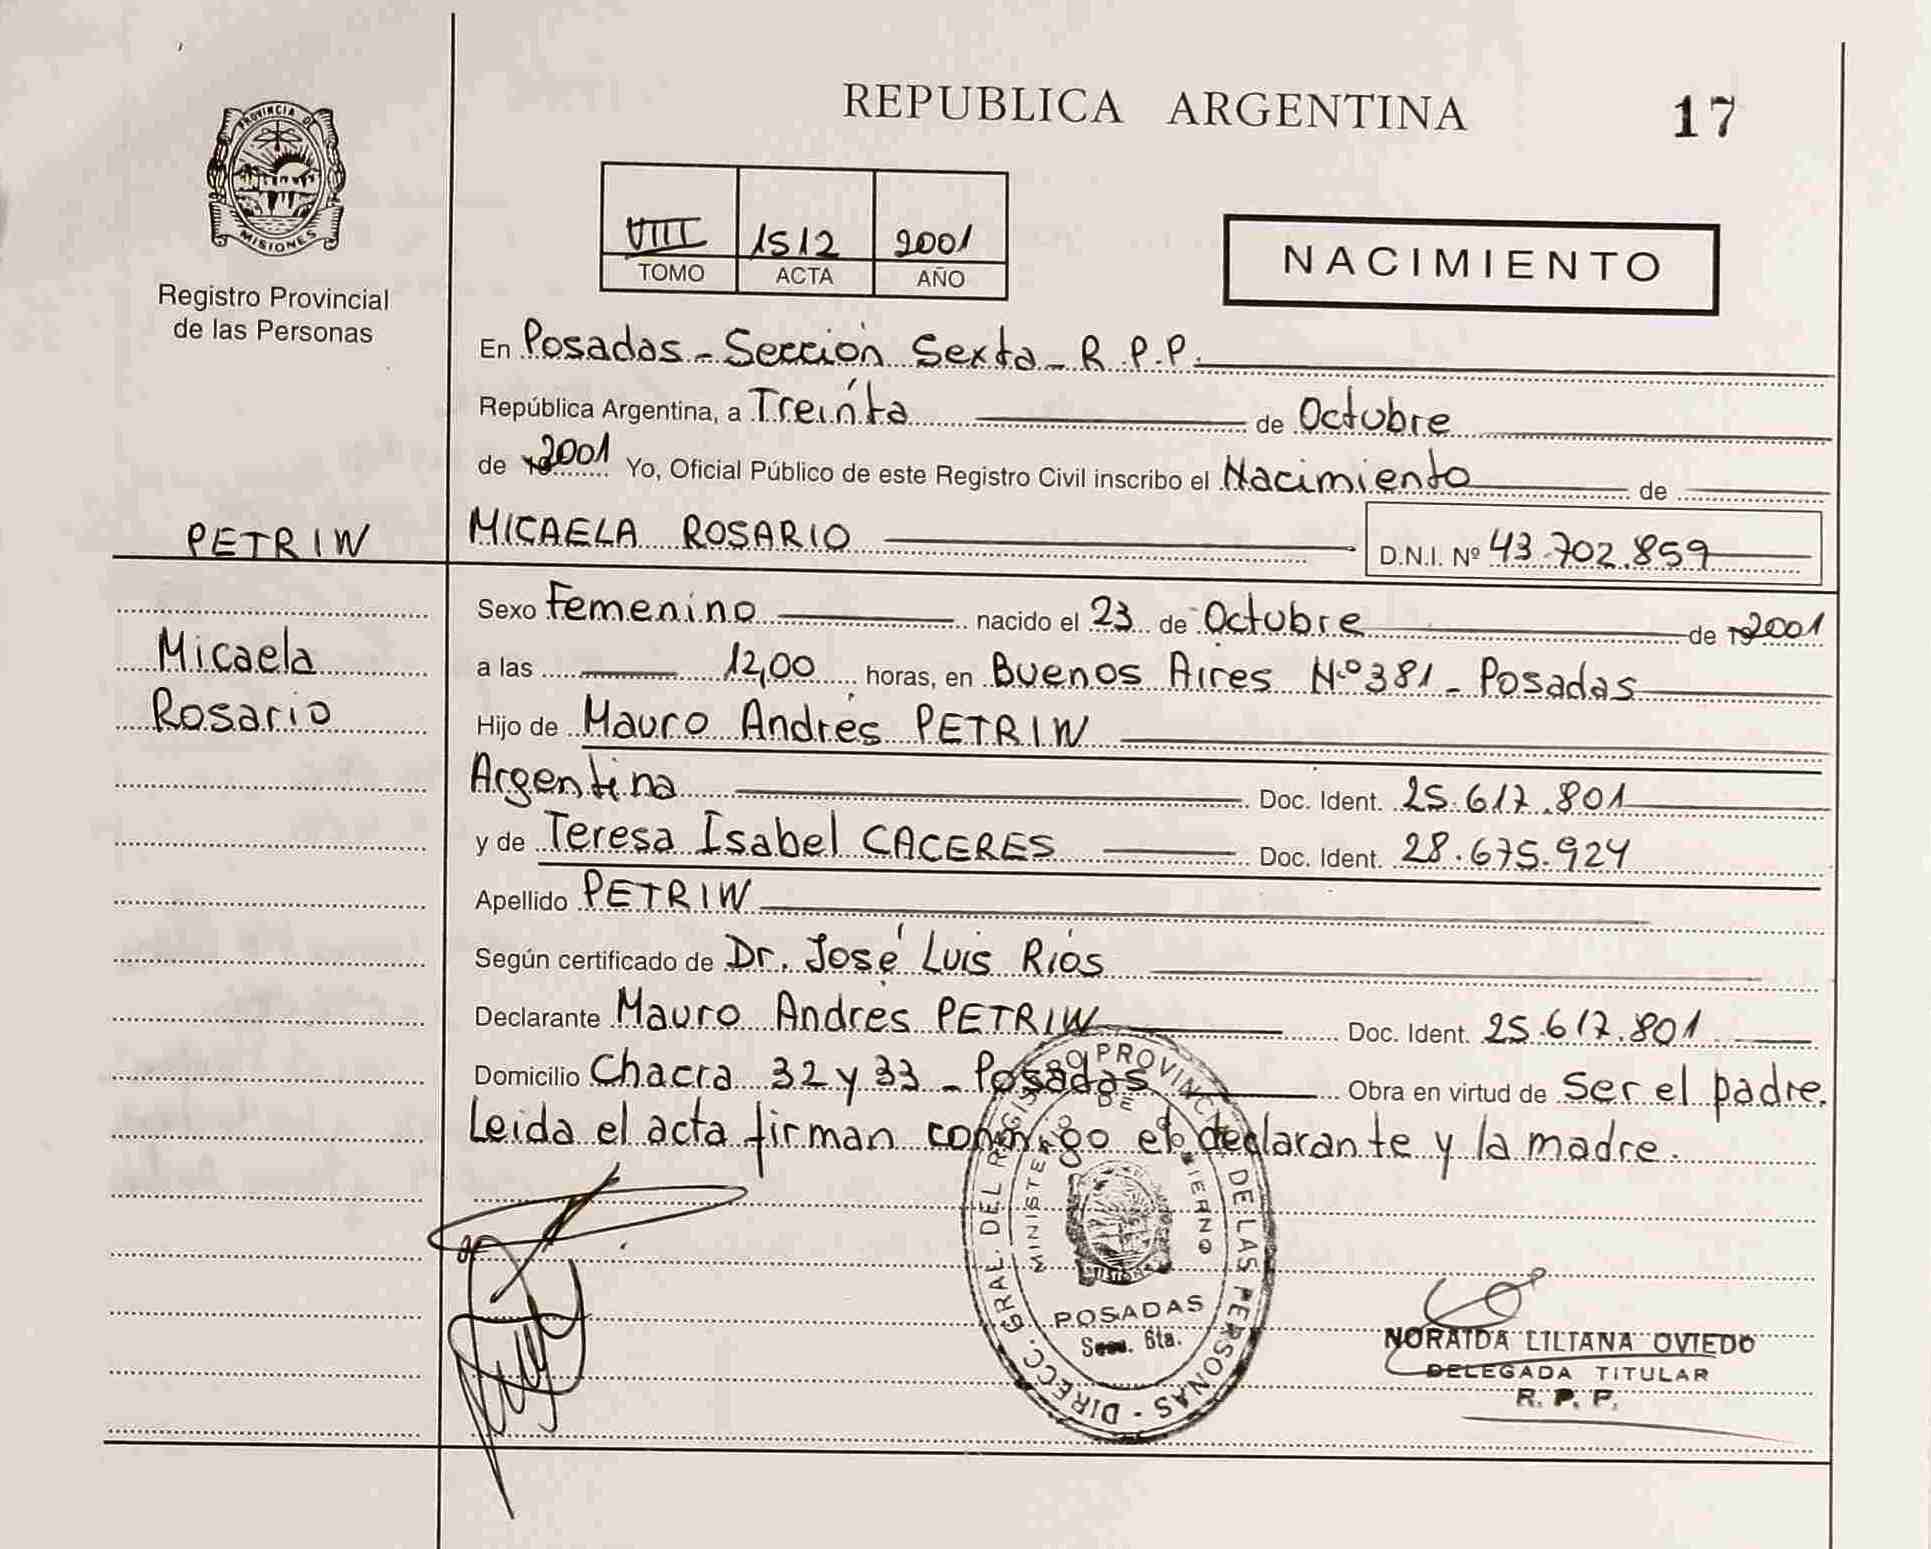 PROVINCIA DE
MISIONES
Registro Provincial
de las Personas
REPUBLICA ARGENTINA 17
VIII 1512 2001
TOMO ACTA AÑO
NACIMIENTO
En Posadas - Sección Sexta - R.P.P.
República Argentina, a Treinta de Octubre
de 2001 Yo, Oficial Público de este Registro Civil inscribo el Nacimiento de
PETRIW
MICAELA ROSARIO D.N.I. Nº 43.702.859
Sexo Femenino nacido el 23 de Octubre de 2001
Micaela
Rosario
a las 12,00 horas, en Buenos Aires Nº 381 - Posadas
Hijo de Mauro Andrés PETRIW
Argentina Doc. Ident. 25.617.801
y de Teresa Isabel CACERES Doc. Ident. 28.675.924
Apellido PETRIW
Según certificado de Dr. José Luis Ríos
Declarante Mauro Andrés PETRIW Doc. Ident. 25.617.801
Domicilio Chacra 32 y 33 - Posadas Obra en virtud de Ser el padre.
Leida el acta firman conmigo el declarante y la madre.
DIRECC. GRAL. DEL REGISTRO PROVINCIAL DE LAS PERSONAS
MINISTERIO DE GOBIERNO
POSADAS
Secc. 6ta.
NORAIDA LILIANA OVIEDO
DELEGADA TITULAR
R. P. P.